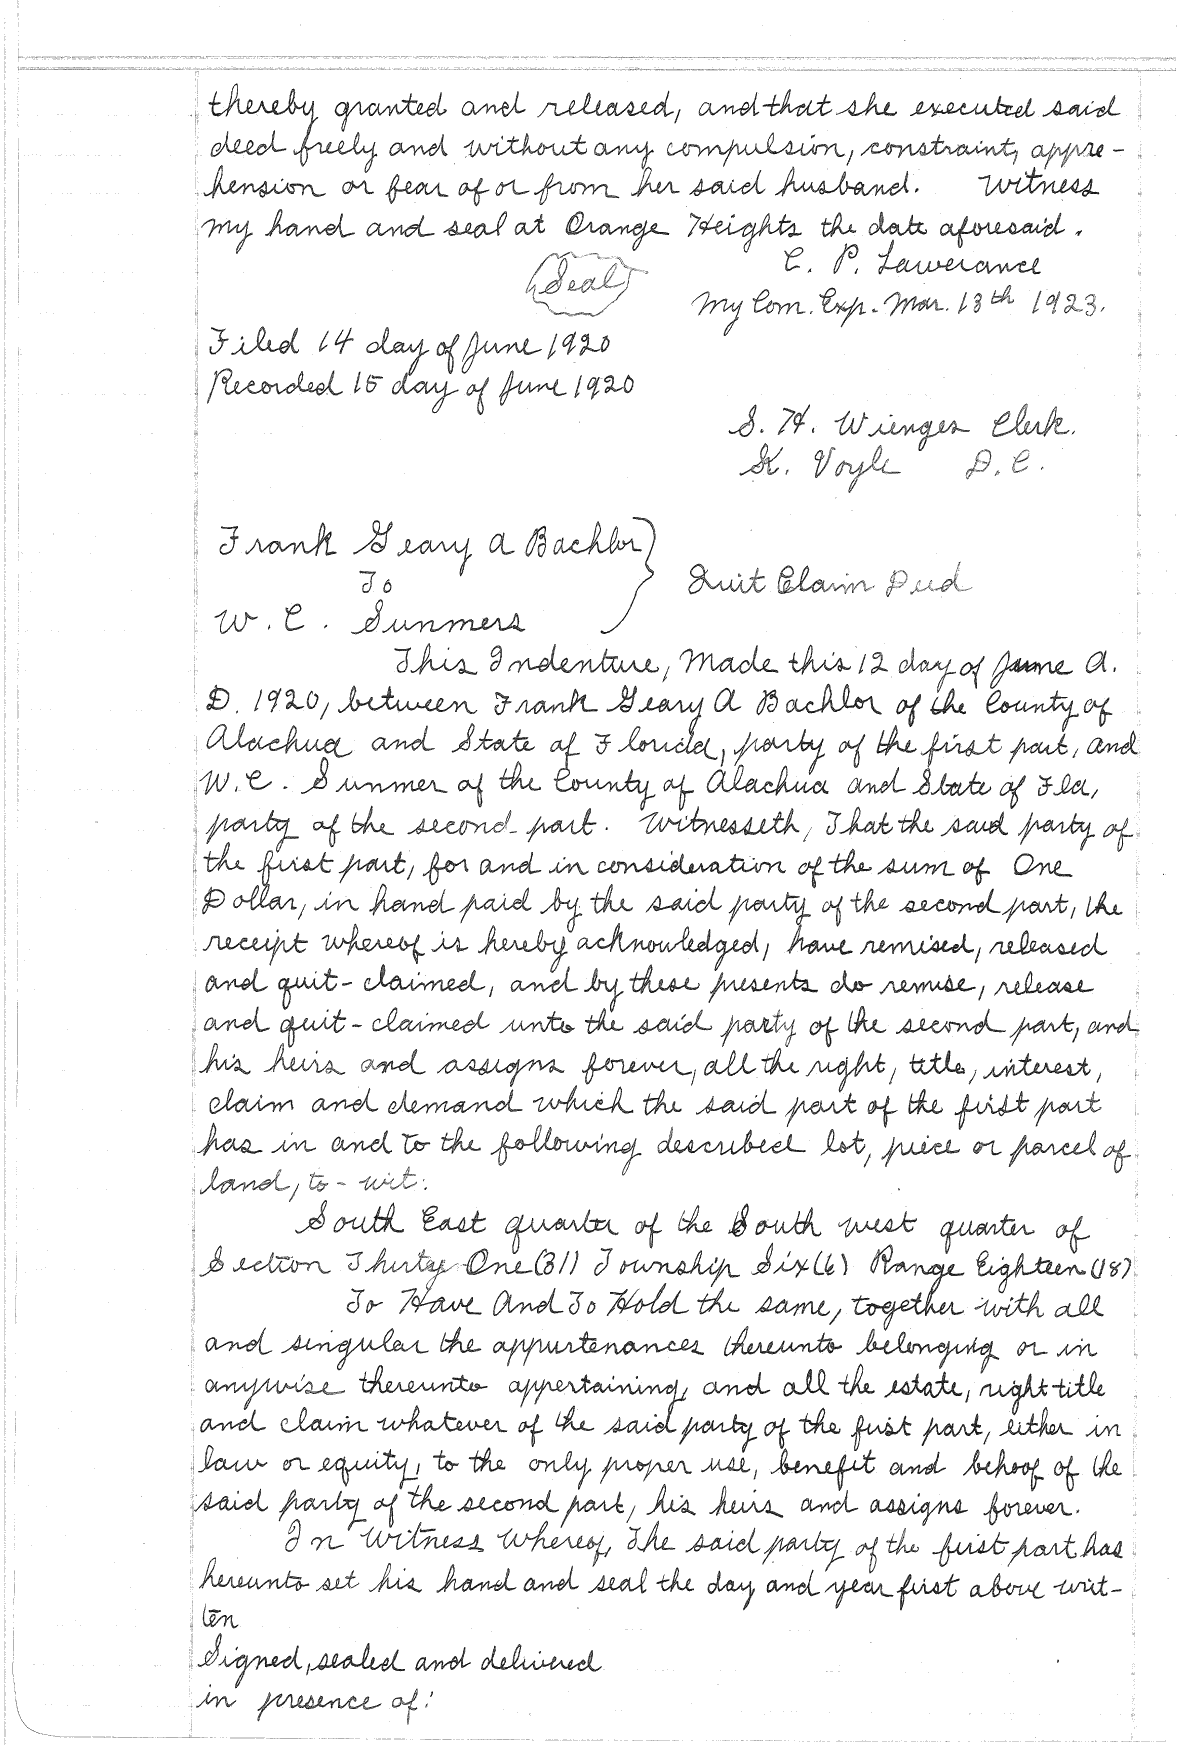 thereby granted and released, and that she executed said
deed freely and without any compulsion, constraint, appre-
hension or fear of or from her said husband. Witness
my hand and seal at Orange Heights the date aforesaid.
C. P. Lawerance
(Seal)
My Com. Exp. Mar. 13th 1923.
Filed 14 day of June 1920
Recorded 15 day of June 1920
S. H. Wienges Clerk.
K. Voyle D.C.
Frank Geary A Bachlor
To
Quit Claim Deed
W. C. Sunmers
This Indenture, Made this 12 day of June A.
D. 1920, between Frank Geary A Bachlor of the County of
Alachua and State of Florida, party of the first part, and
W.C. Sunmer of the County of Alachua and State of Fla,
party of the second part. Witnesseth, That the said party of
the first part, for and in consideration of the sum of One
Dollar, in hand paid by the said party of the second part, the
receipt whereof is hereby acknowledged, have remised, released
and quit-claimed, and by these presents do remise, release
and quit-claimed unto the said party of the second part, and
his heirs and assigns forever, all the right, title, interest,
claim and demand which the said part of the first part
has in and to the following described lot, piece or parcel of
land, to-wit:
South East quarter of the South west quarter of
Section Thirty One (31) Township Six (6) Range Eighteen (18)
To Have And To Hold the same, together with all
and singular the appurtenances thereunto belonging or in
anywise thereunto appertaining, and all the estate, right title
and claim whatever of the said party of the first part, either in
law or equity, to the only proper use, benefit and behoof of the
said party of the second part, his heirs and assigns forever.
In Witness Whereof, The said party of the first part has
hereunto set his hand and seal the day and year first above writ-
ten
Signed, sealed and delivered
in presence of: